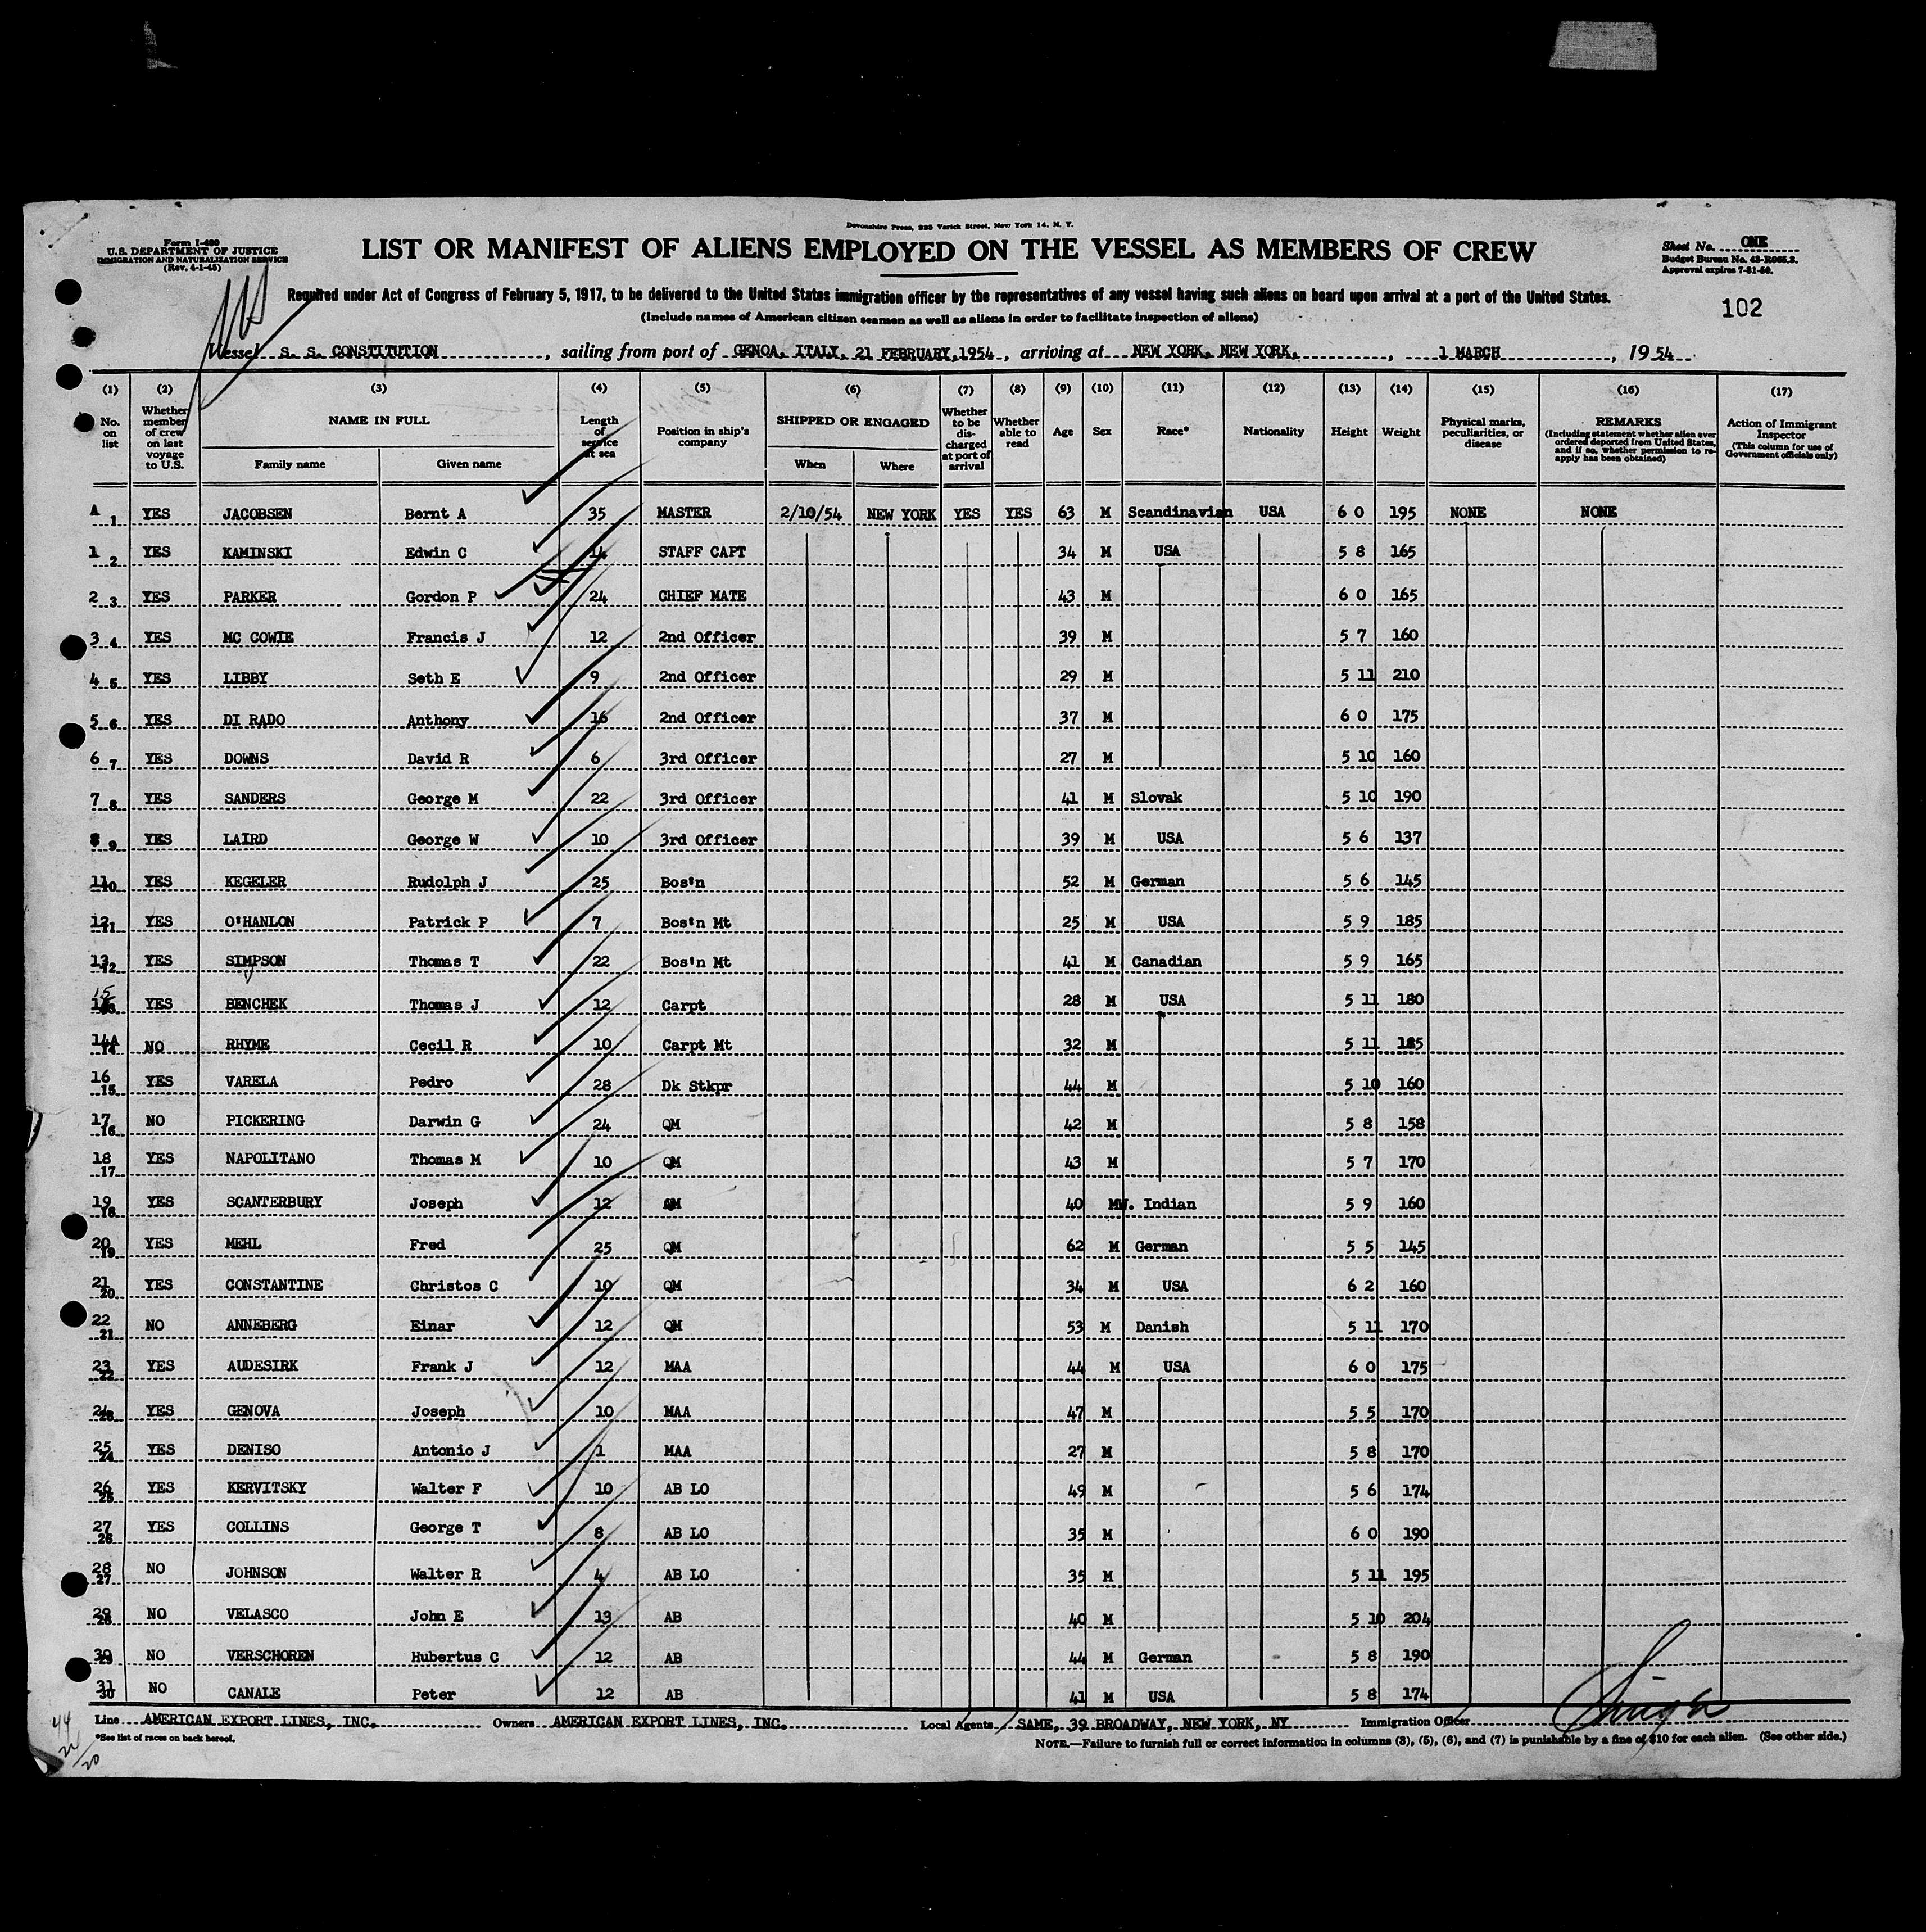 Devonshire Press, 225 Varick Street, New York 14, N. Y.
Form I-480
U.S. DEPARTMENT OF JUSTICE
IMMIGRATION AND NATURALIZATION SERVICE
(Rev. 4-1-45)
LIST OR MANIFEST OF ALIENS EMPLOYED ON THE VESSEL AS MEMBERS OF CREW
Sheet No. ONE
Budget Bureau No. 43-R065.2.
Approval expires 7-31-50.
Required under Act of Congress of February 5, 1917, to be delivered to the United States immigration officer by the representatives of any vessel having such aliens on board upon arrival at a port of the United States.
102
(Include names of American citizen seamen as well as aliens in order to facilitate inspection of aliens)
Vessel S. S. CONSTITUTION, sailing from port of GENOA, ITALY, 21 FEBRUARY, 1954, arriving at NEW YORK, NEW YORK, 1 MARCH, 1954
(1) (2) (3) (4) (5) (6) (7) (8) (9) (10) (11) (12) (13) (14) (15) (16) (17)
No. on list Whether member of crew on last voyage to U.S. NAME IN FULL Family name Given name Length of service at sea Position in ship's company SHIPPED OR ENGAGED When Where Whether to be discharged at port of arrival Whether able to read Age Sex Race* Nationality Height Weight Physical marks, peculiarities, or disease REMARKS (Including statement whether alien ever ordered deported from United States, and if so, whether permission to re-apply has been obtained) Action of Immigrant Inspector (This column for use of Government officials only)
A 1 YES JACOBSEN Bernt A 35 MASTER 2/10/54 NEW YORK YES YES 63 M Scandinavian USA 6 0 195 NONE NONE
1 2 YES KAMINSKI Edwin C 14 STAFF CAPT 34 M USA 5 8 165
2 3 YES PARKER Gordon P 24 CHIEF MATE 43 M 6 0 165
3 4 YES MC COWIE Francis J 12 2nd Officer 39 M 5 7 160
4 5 YES LIBBY Seth E 9 2nd Officer 29 M 5 11 210
5 6 YES DI RADO Anthony 16 2nd Officer 37 M 6 0 175
6 7 YES DOWNS David R 6 3rd Officer 27 M 5 10 160
7 8 YES SANDERS George M 22 3rd Officer 41 M Slovak 5 10 190
8 9 YES LAIRD George W 10 3rd Officer 39 M USA 5 6 137
11 10 YES KEGELER Rudolph J 25 Bos'n 52 M German 5 6 145
12 11 YES O'HANLON Patrick P 7 Bos'n Mt 25 M USA 5 9 185
13 12 YES SIMPSON Thomas T 22 Bos'n Mt 41 M Canadian 5 9 165
15 13 YES BENCHEK Thomas J 12 Carpt 28 M USA 5 11 180
14A 14 NO RHYME Cecil R 10 Carpt Mt 32 M 5 11 185
16 15 YES VARELA Pedro 28 Dk Stkpr 44 M 5 10 160
17 16 NO PICKERING Darwin G 24 QM 42 M 5 8 158
18 17 YES NAPOLITANO Thomas M 10 QM 43 M 5 7 170
19 18 YES SCANTERBURY Joseph 12 QM 40 M W. Indian 5 9 160
20 19 YES MEHL Fred 25 QM 62 M German 5 5 145
21 20 YES CONSTANTINE Christos C 10 QM 34 M USA 6 2 160
22 21 NO ANNEBERG Einar 12 QM 53 M Danish 5 11 170
23 22 YES AUDESIRK Frank J 12 MAA 44 M USA 6 0 175
24 23 YES GENOVA Joseph 10 MAA 47 M 5 5 170
25 24 YES DENISO Antonio J 1 MAA 27 M 5 8 170
26 25 YES KERVITSKY Walter F 10 AB LO 49 M 5 6 174
27 26 YES COLLINS George T 8 AB LO 35 M 6 0 190
28 27 NO JOHNSON Walter R 4 AB LO 35 M 5 11 195
29 28 NO VELASCO John E 13 AB 40 M 5 10 204
30 29 NO VERSCHOREN Hubertus C 12 AB 44 M German 5 8 190
31 30 NO CANALE Peter 12 AB 41 M USA 5 8 174
Line AMERICAN EXPORT LINES, INC. Owners AMERICAN EXPORT LINES, INC. Local Agents SAME, 39 BROADWAY, NEW YORK, NY Immigration Officer
*See list of races on back hereof.
NOTE.—Failure to furnish full or correct information in columns (3), (5), (6), and (7) is punishable by a fine of $10 for each alien. (See other side.)
44
20